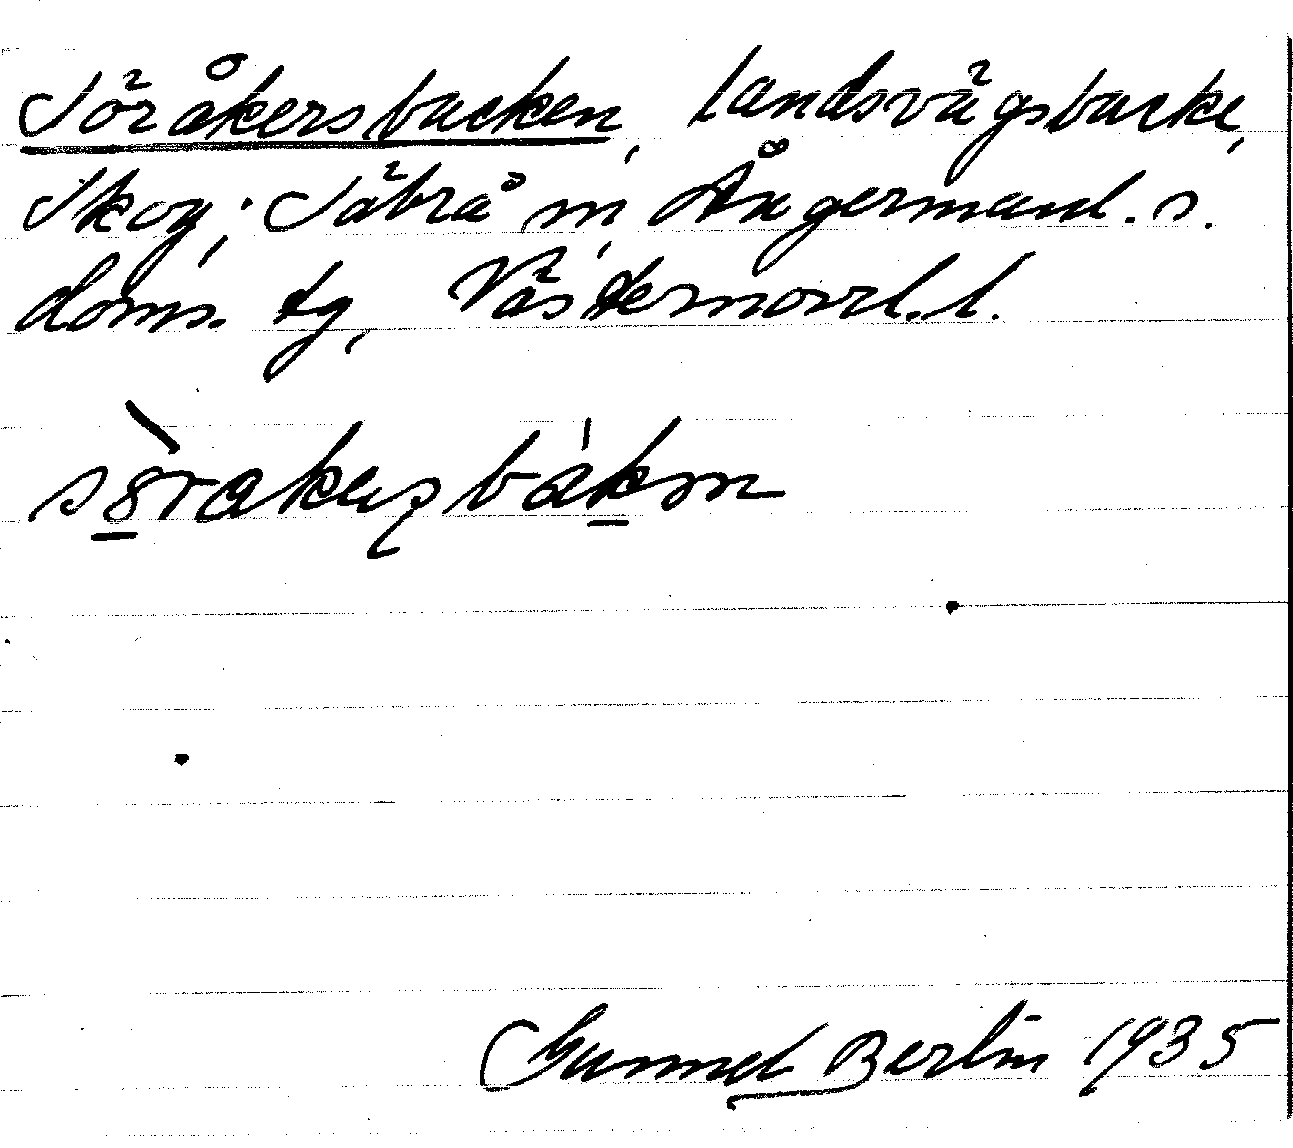 Söråkersbacken, landsvägsbacke,
Skog; Säbrå m, Ångermanl. s.
doms. tg, Västernorrl. l.
Gunnel Berlin 1935